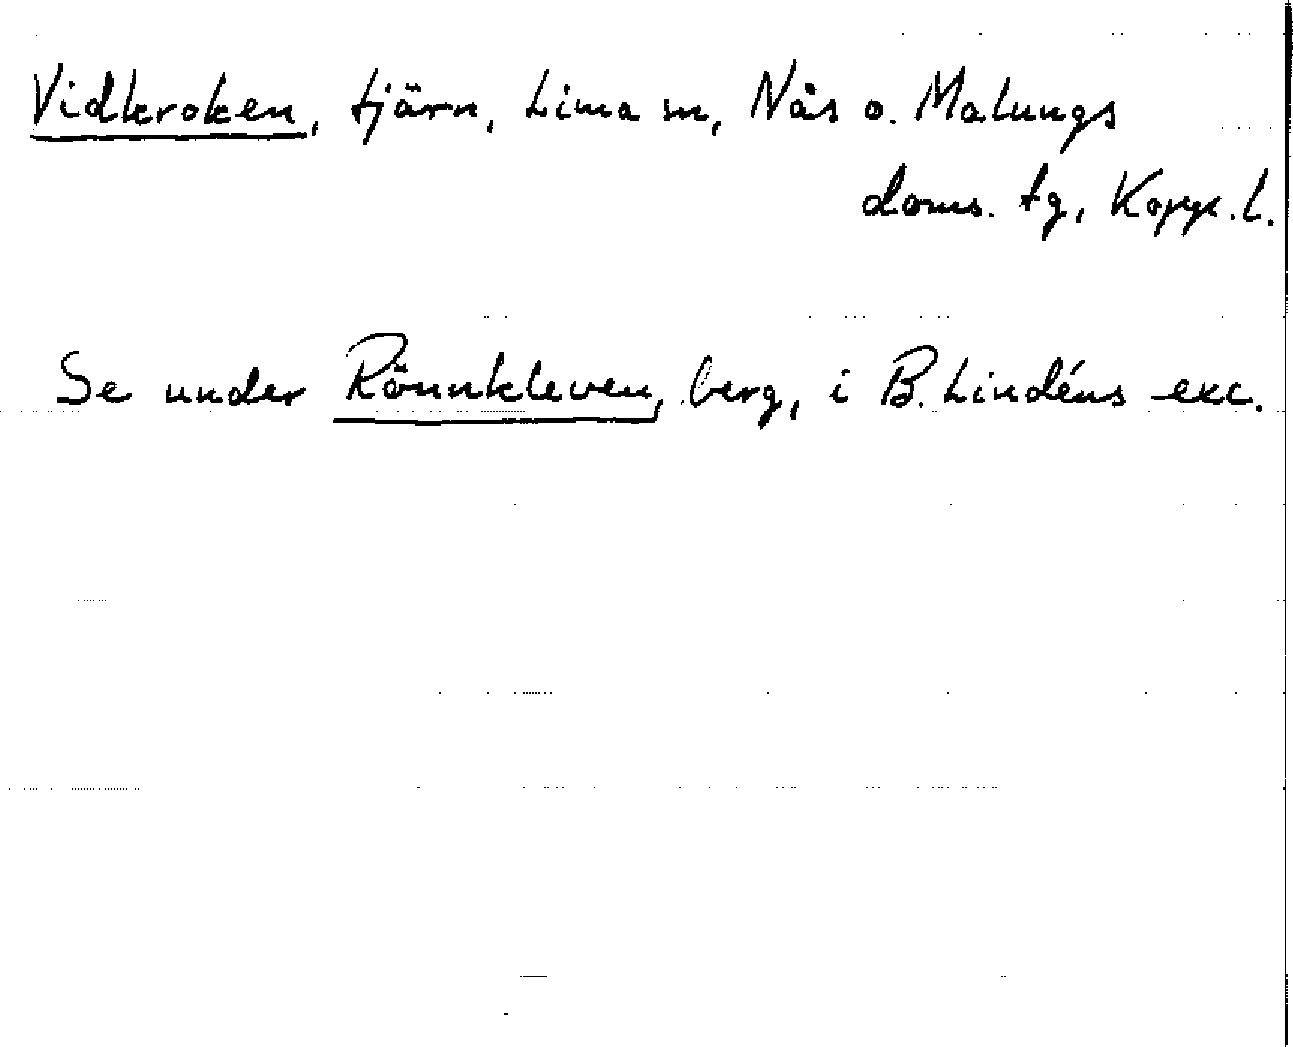 Vidkroken, tjärn, Lima sn, Nås o. Malungs
doms. tg, Kopp. l.
Se under Rönnkleven, berg, i B. Lindéns exc.